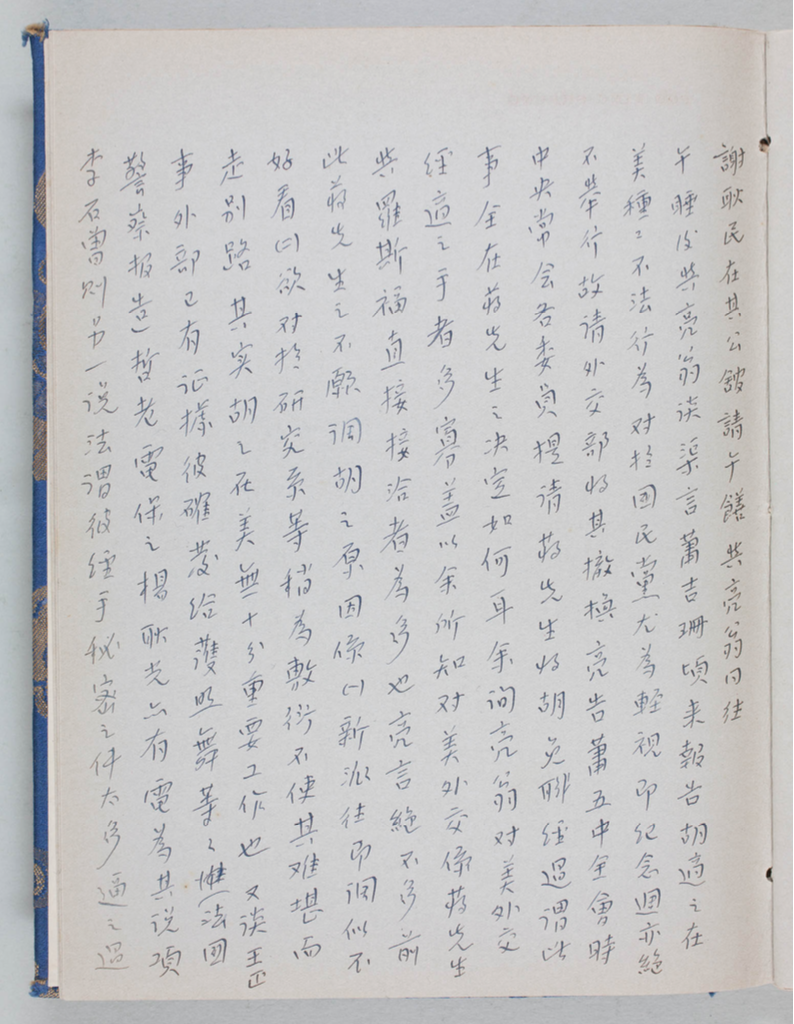 謝耿民在其公舘請午饍与亮翁同往
午睡後与亮翁谈渠言蕭吉珊頃来報告胡適之在
美種々不法行為对於囯民黨尤為軽視即纪念週亦絶
不举行故请外交部将其撤換亮告蕭五中全會時
中央常会各委員提请蒋先生将胡免职经過谓此
事全在蒋先生之决定如何耳余询亮翁对美外交
经適之手者多寡盖以余所知对美外交係蒋先生
与羅斯福直接接洽者為多也亮言絶不多前
此蒋先生之不願调胡之原因係(一)新派往即调似不
好看(二)欲对於研究系等稍為敷衍不使其难堪而
走别路其实胡之在美無十分重要工作也又谈王正
事外部已有证據彼確曾發给護照舞弊等々惟(法囯
警察报告)哲老電保之楊耿光亦有電為其说項
李石曾则另一说法谓彼经手秘密之件太多逼之過